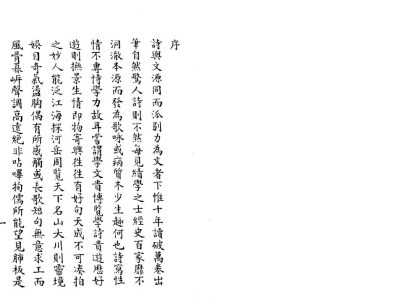 序
詩與文源同而派別力為文者下惟十年讀破萬卷出
筆自然驚人詩則不然每見績學之士經史百家靡不
洞澈本源而發為歌咏或病質木少生趣何也詩寫性
情不專博學力故耳嘗謂學文貴博覽學詩貴遊歷好
遊則撫景生情即物寄興往往有好句天成不可湊拍
之妙人能泛江海探河岳周覽天下名山大川則靈境
娛目奇氣盪胸偶有所感觸或長歌短句無意求工而
風骨聲調高遠絕非呫嗶拘儒所能望見肺板是
一